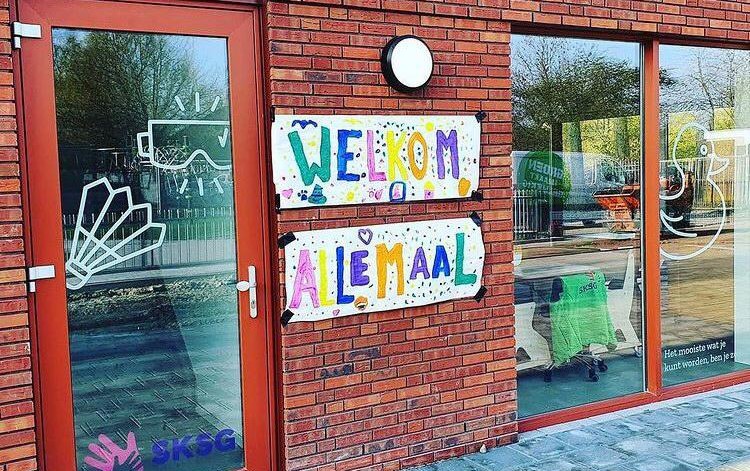 WELKOM
ALLEMAAL
SKSG
SKSG
Het mooiste wat je
kunt worden, ben je